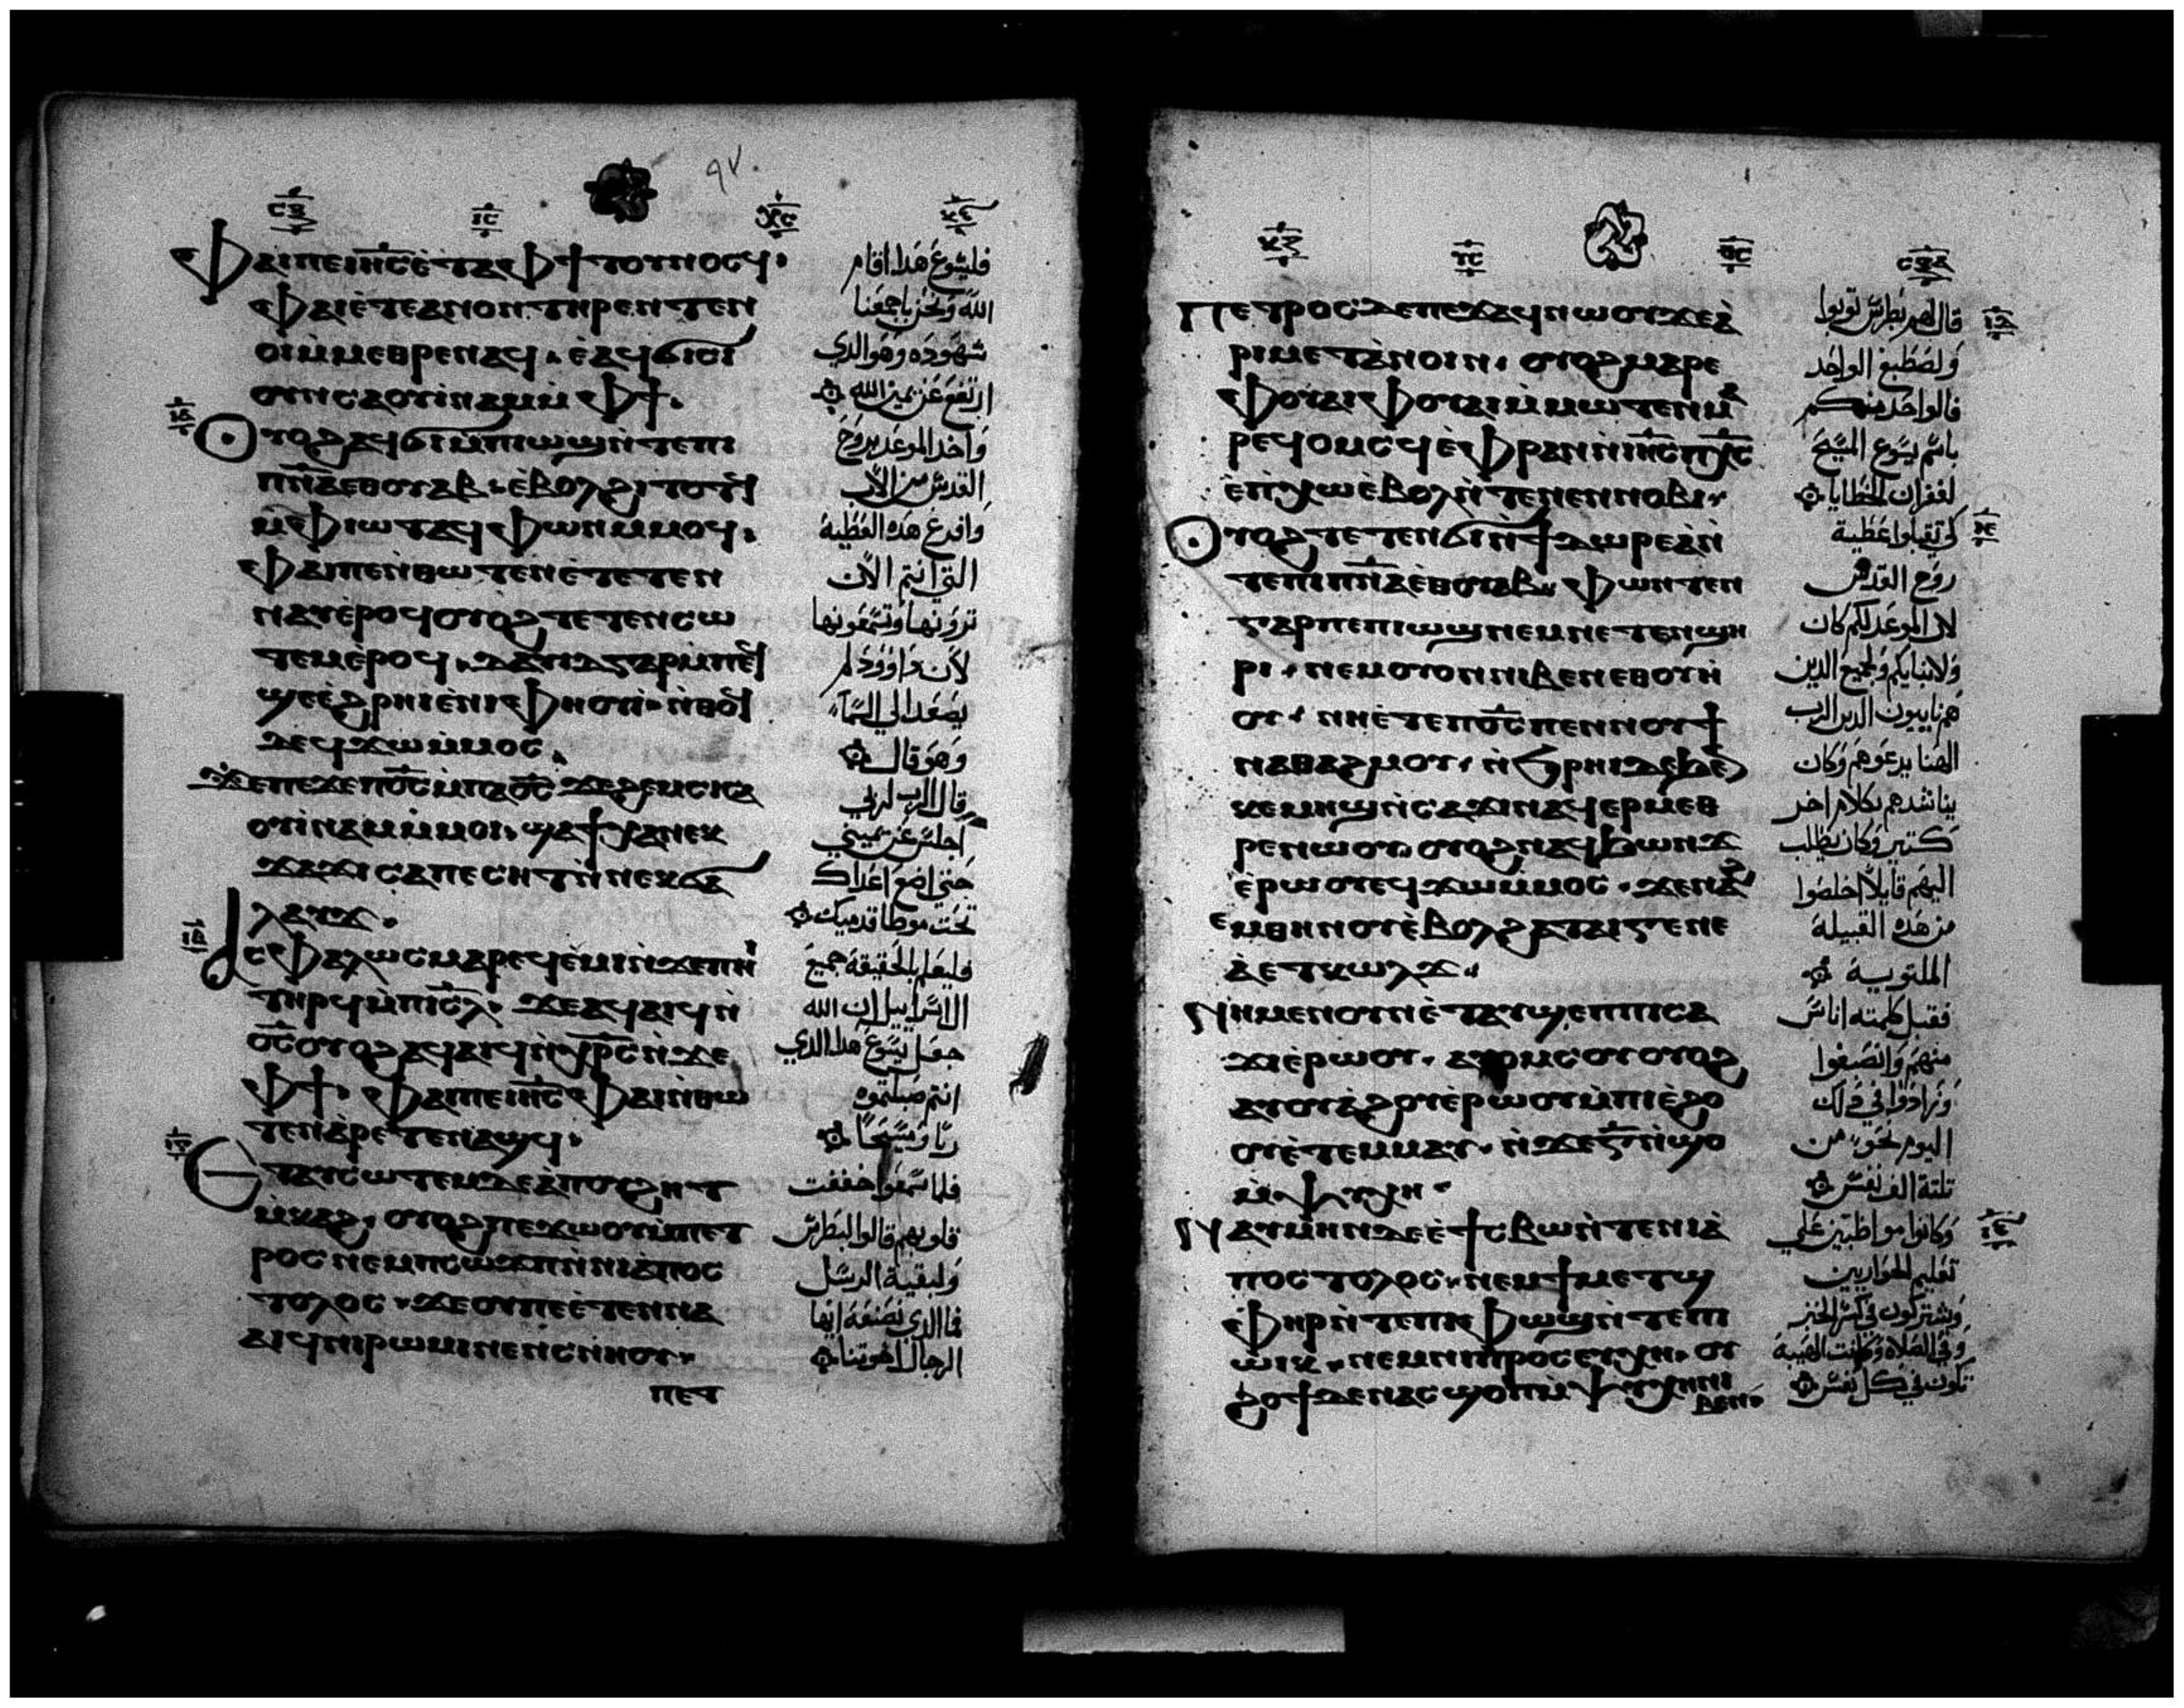 ⲥϥ ⲓⲥ ⲭⲥ
٩٧
ⲫⲁⲓⲡⲉⲓⲏ̅ⲥ̅ⲉ̀ⲧⲁⲫϯⲧⲟⲩⲛⲟⲥϥ·
ⲫⲁⲓⲉ̀ⲧⲉⲁⲛⲟⲛⲧⲏⲣⲉⲛⲧⲉⲛ
ⲟⲓⲙ̀ⲙⲉⲑⲣⲉⲛⲁϥ·ⲉ̀ⲁϥϭⲓⲥⲓ
ⲥⲁⲟⲩⲓ̀ⲛⲁⲙⲙ̀ⲫϯ·
ⲟⲩⲟϩⲁϥϭⲓⲙ̀ⲡⲓⲱϣⲛ̀ⲧⲉⲡⲓ
ⲡ̅ⲛ̅ⲁ̅ⲉⲑⲟⲩⲁⲃ·ⲉ̀ⲃⲟⲗϩⲓⲧⲟⲧϥ
ⲙ̀ⲫⲓⲱⲧⲁϥⲫⲱⲛⲙⲙⲟϥ·
ⲫⲁⲓⲡⲉⲛ̀ⲑⲱⲧⲉⲛⲉ̀ⲧⲉⲧⲉⲛ
ⲛⲁⲩⲉ̀ⲣⲟϥⲟⲩⲟϩⲧⲉⲧⲉⲛⲥⲱ
ⲧⲉⲙⲉ̀ⲣⲟϥ·ⲇⲁⲩⲓⲇⲅⲁⲣⲙ̀ⲡⲉϥ
ϣⲉⲉ̀ϩⲣⲏⲓⲉ̀ⲛⲓⲫⲏⲟⲩⲓ̀·ⲛ̀ⲑⲟϥ
ⲇⲉϥϫⲱⲙ̀ⲙⲟⲥ·
ϫⲉⲡⲉϫⲉⲡ⳪ⲙ̀ⲡⲁ⳪ϫⲉϩⲉⲙⲥⲓⲥⲁ
ⲟⲩⲓ̀ⲛⲁⲙⲙ̀ⲙⲟⲓ·ϣⲁϯⲭⲁⲛⲉⲕ
ϫⲁϫⲓⲥⲁⲡⲉⲥⲏⲧⲛ̀ⲛⲉⲕϭⲁ
ⲗⲁⲩϫ·
ⲁⲥⲫⲁⲗⲱⲥⲙⲁⲣⲉϥⲉ̀ⲙⲓⲛ̀ϫⲉⲡⲏⲓ
ⲧⲏⲣϥⲙ̀ⲡⲓⲥ̅ⲗ̅·ϫⲉⲁϥⲁⲓϥⲛ̀
⳪ⲟⲩⲟϩⲁϥⲁⲓϥⲛ̀ⲭⲣ̅ⲥ̅ⲛ̀ϫⲉ
ⲫϯ·ⲫⲁⲓⲡⲉⲓⲏ̅ⲥ̅ⲫⲁⲓⲛ̀ⲑⲱ
ⲧⲉⲛⲁ̀ⲣⲉⲧⲉⲛⲁϣϥ·
ⲉⲧⲁⲩⲥⲱⲧⲉⲙⲇⲉⲁ̀ⲡⲟⲩϩⲏⲧ
ⲙ̀ⲕⲁϩ·ⲟⲩⲟϩⲡⲉϫⲱⲟⲩⲙ̀ⲡⲉⲧ
ⲣⲟⲥⲛⲉⲙⲡⲥⲱϫⲡⲛ̀ⲛⲓⲁ̀ⲡⲟⲥ
ⲧⲟⲗⲟⲥ·ϫⲉⲟⲩⲡⲉⲉ̀ⲧⲉⲛⲛⲁ
ⲁⲓϥⲛⲓⲣⲱⲙⲓⲛⲉⲛⲥⲛⲏⲟⲩ·
ⲡⲉⲧ
فليشوع هدا اقام
الله ونحن باجمعنا
شهوده وهو الدي
ارتفع عن يمين الله
واخد الموعد بروح
القدس من الاب
وافرغ هده العطية
التي انتم الان
ترونها وتسمعونها
لان داوود لم
يصعد الي السماء
وهو قال
قال الرب لربي
اجلس عن يميني
حتي اضع اعداك
تحت موطا قدميك
فليعلم بالحقيقة جميع
ال اسراييل ان الله
جعل يسوع هدا الدي
انتم صلبتموه
ربا ومسيحا
فلما سمعوا خفقت
قلوبهم قالوا لبطرس
ولبقية الرسل
فما الدي نصنعه ايها
الرجال اخوتنا
ⲡⲉⲧⲣⲟⲥⲇⲉⲡⲉϫⲁϥⲛⲱⲟⲩϫⲉⲁ̀
ⲣⲓⲙⲉⲧⲁⲛⲟⲓⲛ·ⲟⲩⲟϩⲙⲁⲣⲉ
ⲫⲟⲩⲁⲓⲫⲟⲩⲁⲓⲙ̀ⲙⲱⲧⲉⲛⲙⲁ
ⲣⲉϥⲟⲙⲥϥⲉ̀ⲫⲣⲁⲛⲛ̀ⲓⲏ̅ⲥ̅ⲡⲭ̅ⲥ̅
ⲉ̀ⲡⲭⲱⲉ̀ⲃⲟⲗⲛ̀ⲧⲉⲛⲉⲛⲛⲟⲃⲓ·
ⲟⲩⲟϩⲧⲉⲧⲉⲛϭⲓⲛ̀ϯⲇⲱⲣⲉⲁ̀ⲛ̀
ⲧⲉⲡⲓⲡ̅ⲛ̅ⲁ̅ⲉ̀ⲑⲟⲩⲁⲃ·ⲫⲱⲛⲧⲉⲛ
ⲅⲁⲣⲡⲉⲡⲓⲱϣⲛⲉⲙⲛⲉⲧⲉⲛϣⲏ
ⲣⲓ·ⲛⲉⲙⲟⲩⲟⲛⲛⲓⲃⲉⲛⲉⲑⲟⲩⲏ
ⲟⲩ·ⲛⲏⲉ̀ⲧⲉⲡ⳪ⲡⲉⲛⲛⲟⲩϯ
ⲛⲁⲑⲁϩⲙⲟⲩ·ⲛ̀ϩⲣⲏⲓⲇⲉϧⲉⲛ
ⲕⲉⲙⲏϣⲛ̀ⲥⲁϫⲓⲛⲁϥⲉⲣⲙⲉⲑ
ⲣⲉⲛⲱⲟⲩ·ⲟⲩⲟϩⲛⲁϥϯϩⲱⲛϫ
ⲉ̀ⲣⲱⲟⲩⲉϥϫⲱⲙ̀ⲙⲟⲥ·ϫⲉⲛⲁϩ
ⲉⲙⲑⲏⲛⲟⲩⲉ̀ⲃⲟⲗϩⲁⲧⲁⲓⲅⲉⲛⲉ
ⲁ̀ⲉⲧⲕⲱⲗϫ·
ⲛⲏⲙⲉⲛⲟⲩⲛⲉ̀ⲧⲁⲩϣⲉⲡⲡⲓⲥⲁ
ϫⲓⲉ̀ⲣⲱⲟⲩ·ⲁⲩⲟⲙⲥⲟⲩⲟⲩⲟϩ
ⲁⲩⲟⲩⲁϩⲟⲩⲉ̀ⲣⲱⲟⲩⲙ̀ⲡⲓⲉ̀ϩⲟ
ⲟⲩⲉ̀ⲧⲉⲙⲙⲁⲩ·ⲛ̀ϫⲉⲅ̅ⲛ̀ϣⲟ
ⲙ̀ⲯⲩⲭⲏ·
ⲛⲁⲩⲙⲏⲛⲇⲉⲉ̀ϯⲥⲃⲱⲛ̀ⲧⲉⲛⲓⲁ̀
ⲡⲟⲥⲧⲟⲗⲟⲥ·ⲛⲉⲙϯⲙⲉⲧϣ
ⲫⲏⲣⲛ̀ⲧⲉⲡⲓⲫⲱϣⲛ̀ⲧⲉⲡⲓ
ⲱⲓⲕ·ⲛⲉⲙⲛⲓⲡⲣⲟⲥⲉⲩⲭⲏ·ⲟⲩ
ϩⲟϯⲇⲉⲛⲁⲥϣⲟⲡⲙ̀ⲯⲩⲭⲏⲛⲓ
ⲃⲉⲛ·
قال لهم بطرس توبوا
ولصطبغ الواحد
فالواحد منكم
باسم يسوع المسيح
لغفران الخطايا
كي تقبلوا عطية
روح القدس
لان الموعد لكم كان
ولابنايكم ولجميع الدين
هم ناييون الدين الرب
الهنا يدعوهم وكان
يناشدهم بكلام اخر
كتير وكان يطلب
اليهم قايلا اخلصوا
من هده القبيلة
الملتوية
فقبل كلمته اناس
منهم وانصبغوا
وزادوا في دلك
اليوم نحو من
تلتة الف نفس
وكانوا مواظبين علي
تعليم الحواريين
ويشتركون في كسر الخبز
وفي الصلاة وكانت الهيبة
تكون في كل نفس